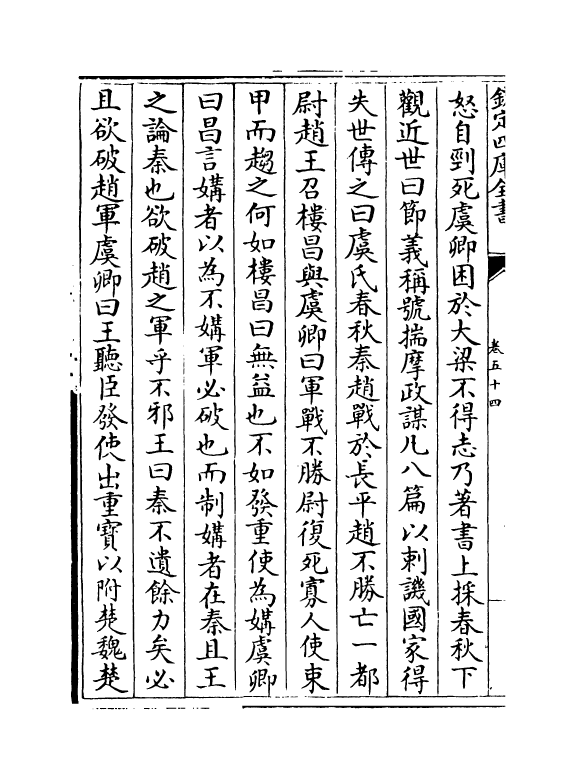 欽定四庫全書
卷五十四
怒自剄死虞卿困於大梁不得志乃著書上採春秋下
觀近世曰節義稱號揣摩政謀凡八篇以刺譏國家得
失世傳之曰虞氏春秋秦趙戰於長平趙不勝亡一都
尉趙王召樓昌與虞卿曰軍戰不勝尉復死寡人使束
甲而趨之何如樓昌曰無益也不如發重使為媾虞卿
曰昌言媾者以為不媾軍必破也而制媾者在秦且王
之論秦也欲破趙之軍乎不邪王曰秦不遺餘力矣必
且欲破趙軍虞卿曰王聽臣發使出重寶以附楚魏楚